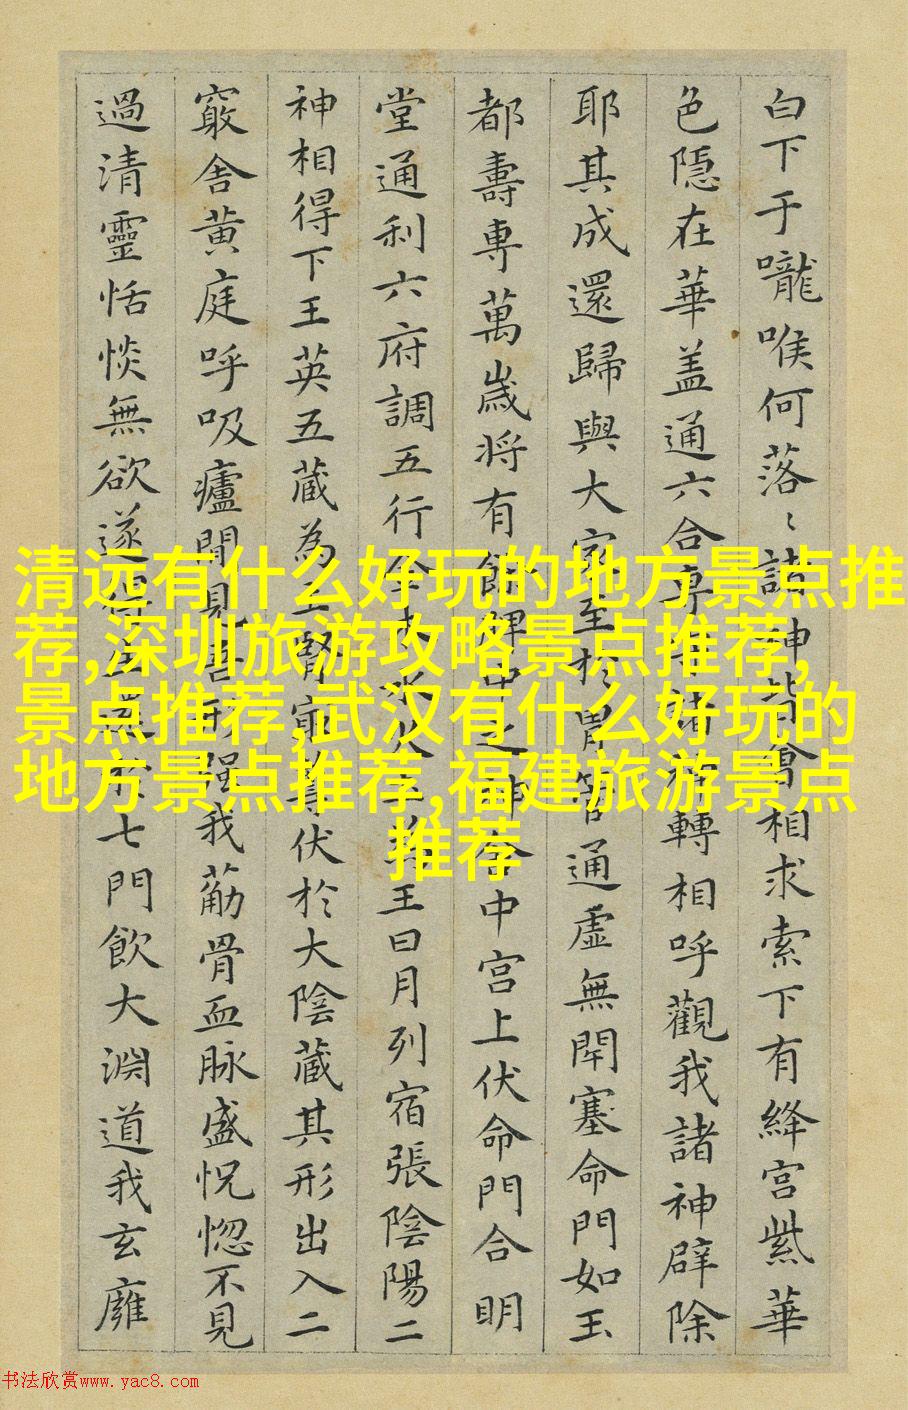 白下于嚨喉何落〻諸神皆會相求索下有絳宮紫華
色隱在華盖通六合專守諸神轉相呼觀我諸神辟除
耶其成還歸與大家至於胃管通虛無閇塞命門如玉
都壽專萬歲将有餘脾中之神舍中宫上伏命門合明
堂通利六府調五行金木水火土為王日月列宿張陰陽二
神相得下王英五蔵為主腎㝡尊伏於大陰蔵其形出入二
竅舍黄庭呼吸廬間見吾形强我筋骨血脉盛怳惚不見
過清靈恬惔無欲遂得生還於七門飲大淵道我玄廱
清远有什么好玩的地方景点推
荐,深圳旅游攻略景点推荐,
景点推荐,武汉有什么好玩的
地方景点推荐,福建旅游景点
推荐
书法欣赏www.yac8.com